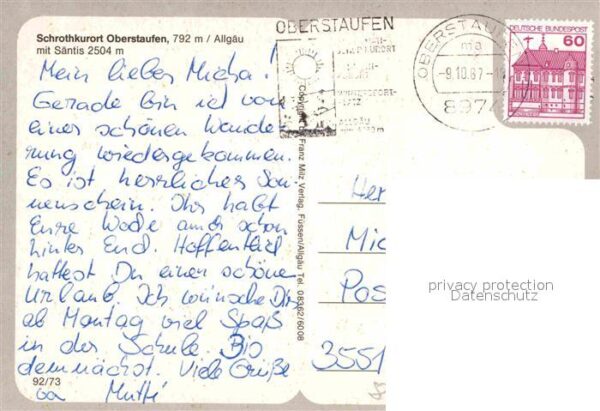 Schrothkurort Oberstaufen, 792 m / Allgäu
mit Säntis 2504 m
Mein lieber Micha!
Gerade bin ich von
einer schönen Wande-
rung wiedergekommen.
Es ist herrlicher Son-
nenschein. Ihr habt
Eure Woche auch schon
hinter Euch. Hoffentlich
hattest Du einen schönen
Urlaub. Ich wünsche Dir
ab Montag viel Spaß
in der Schule. Bis
demnächst. Viele Grüße
92/73
Mutti
Franz Milz Verlag, Füssen/Allgäu Tel. 08362/6008
OBERSTAUFEN
OBERSTAU
-9.10.87-
8974
DEUTSCHE BUNDESPOST
60
Her
Mic
Pos
3551
privacy protection
Datenschutz